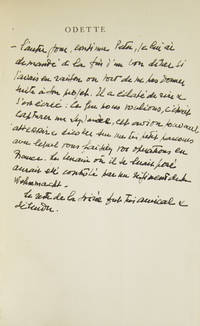 ODETTE
— L'autre jour, continue Peter, je lui ai
demandé à la fin d'un bon dîner si
j'avais eu raison ou tort de ne pas donner
suite à son projet. Il a éclaté de rire &
s'est écrié : Ce que nous voulions, c'était
capturer un Lysander, cet avion
atterrissant sur un petit parcours
avec lequel vous faisiez vos opérations en
France. Le terrain où il se serait posé
aurait été contrôlé par un régiment de la
Wehrmacht. —
Le reste de la soirée fut très amical &
détendu.